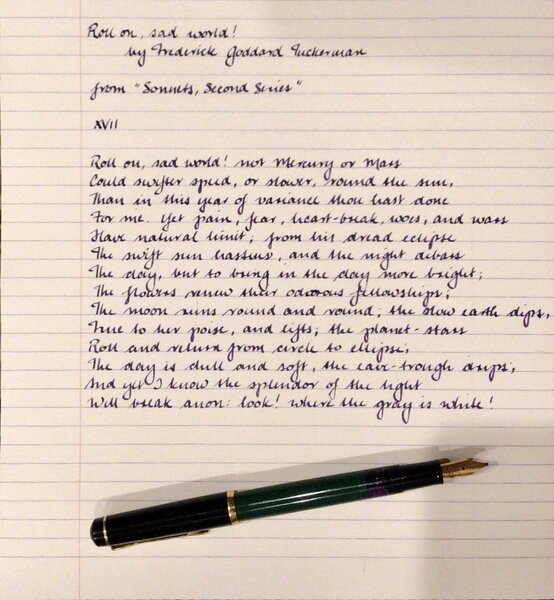 Roll on, sad world!
by Frederick Goddard Tuckerman
from "Sonnets, Second Series"
XVII
Roll on, sad world! not Mercury or Mars
Could swifter speed, or slower, round the sun,
Than in this year of variance thou hast done
For me. Yet pain, fear, heart-break, woes, and wars
Have natural limit; from his dread eclipse
The swift sun hastens, and the night debars
The day, but to bring in the day more bright;
The flowers renew their odorous fellowships;
The moon runs round and round; the slow earth dips,
True to her poise, and lifts; the planet-stars
Roll and return from circle to ellipse;
The day is dull and soft, the eave-trough drips;
And yet I know the splendor of the light
Will break anon: look! where the gray is white!